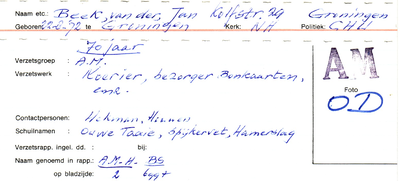 Naam etc.: Beek, van der, Jan Kolfstr. 29 Groningen
Geboren: 22-2-'92 te Groningen Kerk: NH Politiek: CHU
70 jaar
Verzetsgroep : A.M.
Verzetswerk : Koerier, bezorger Bonkaarten, enz.
AM
Foto
OD
Contactpersonen: Hekman, Hennen
Schuilnamen : Ouwe Taaie, Spijkervet, Hamerslag
Verzetsrapp. ingel. dd. : bij:
Naam genoemd in rapp.: A.M.-H. BS
op bladzijde: 2